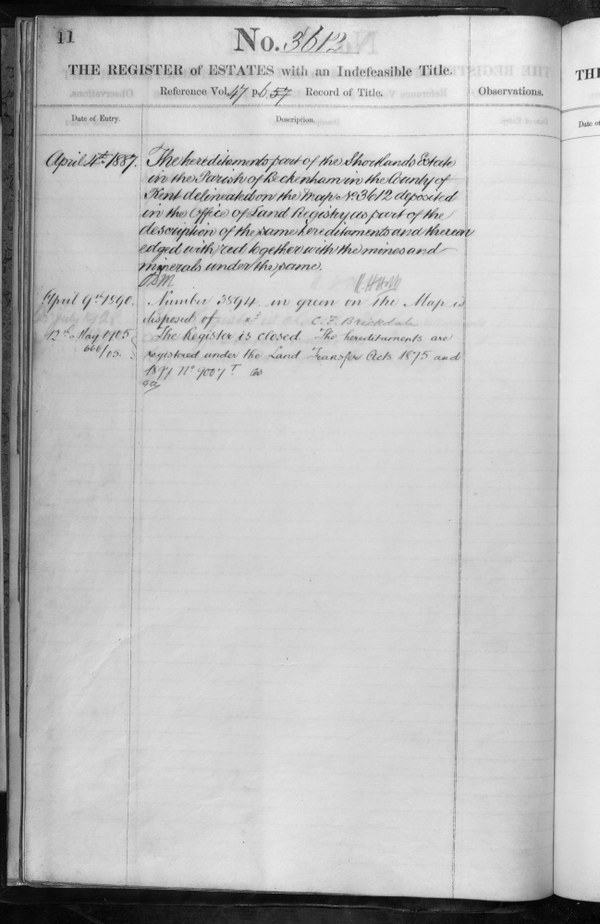 11
No. 3612
THE REGISTER of ESTATES with an Indefeasible Title.
Reference Vol. 47 p. 657 Record of Title.
Observations.
Date of Entry.
Description.
April 4th 1887. The hereditaments part of the Shortlands Estate
in the Parish of Beckenham in the County of
Kent delineated on the Map No 3612 deposited
in the Office of Land Registry as part of the
description of the same hereditaments and therein
edged with red together with the mines and
minerals under the same.
April 9th 1890. Number 3894 in green on the Map is
disposed of C. F. Brickdale
12th May 1905 The Register is closed The hereditaments are
666/05. registered under the Land Transfer Acts 1875 and
1897 No
TH
Date of